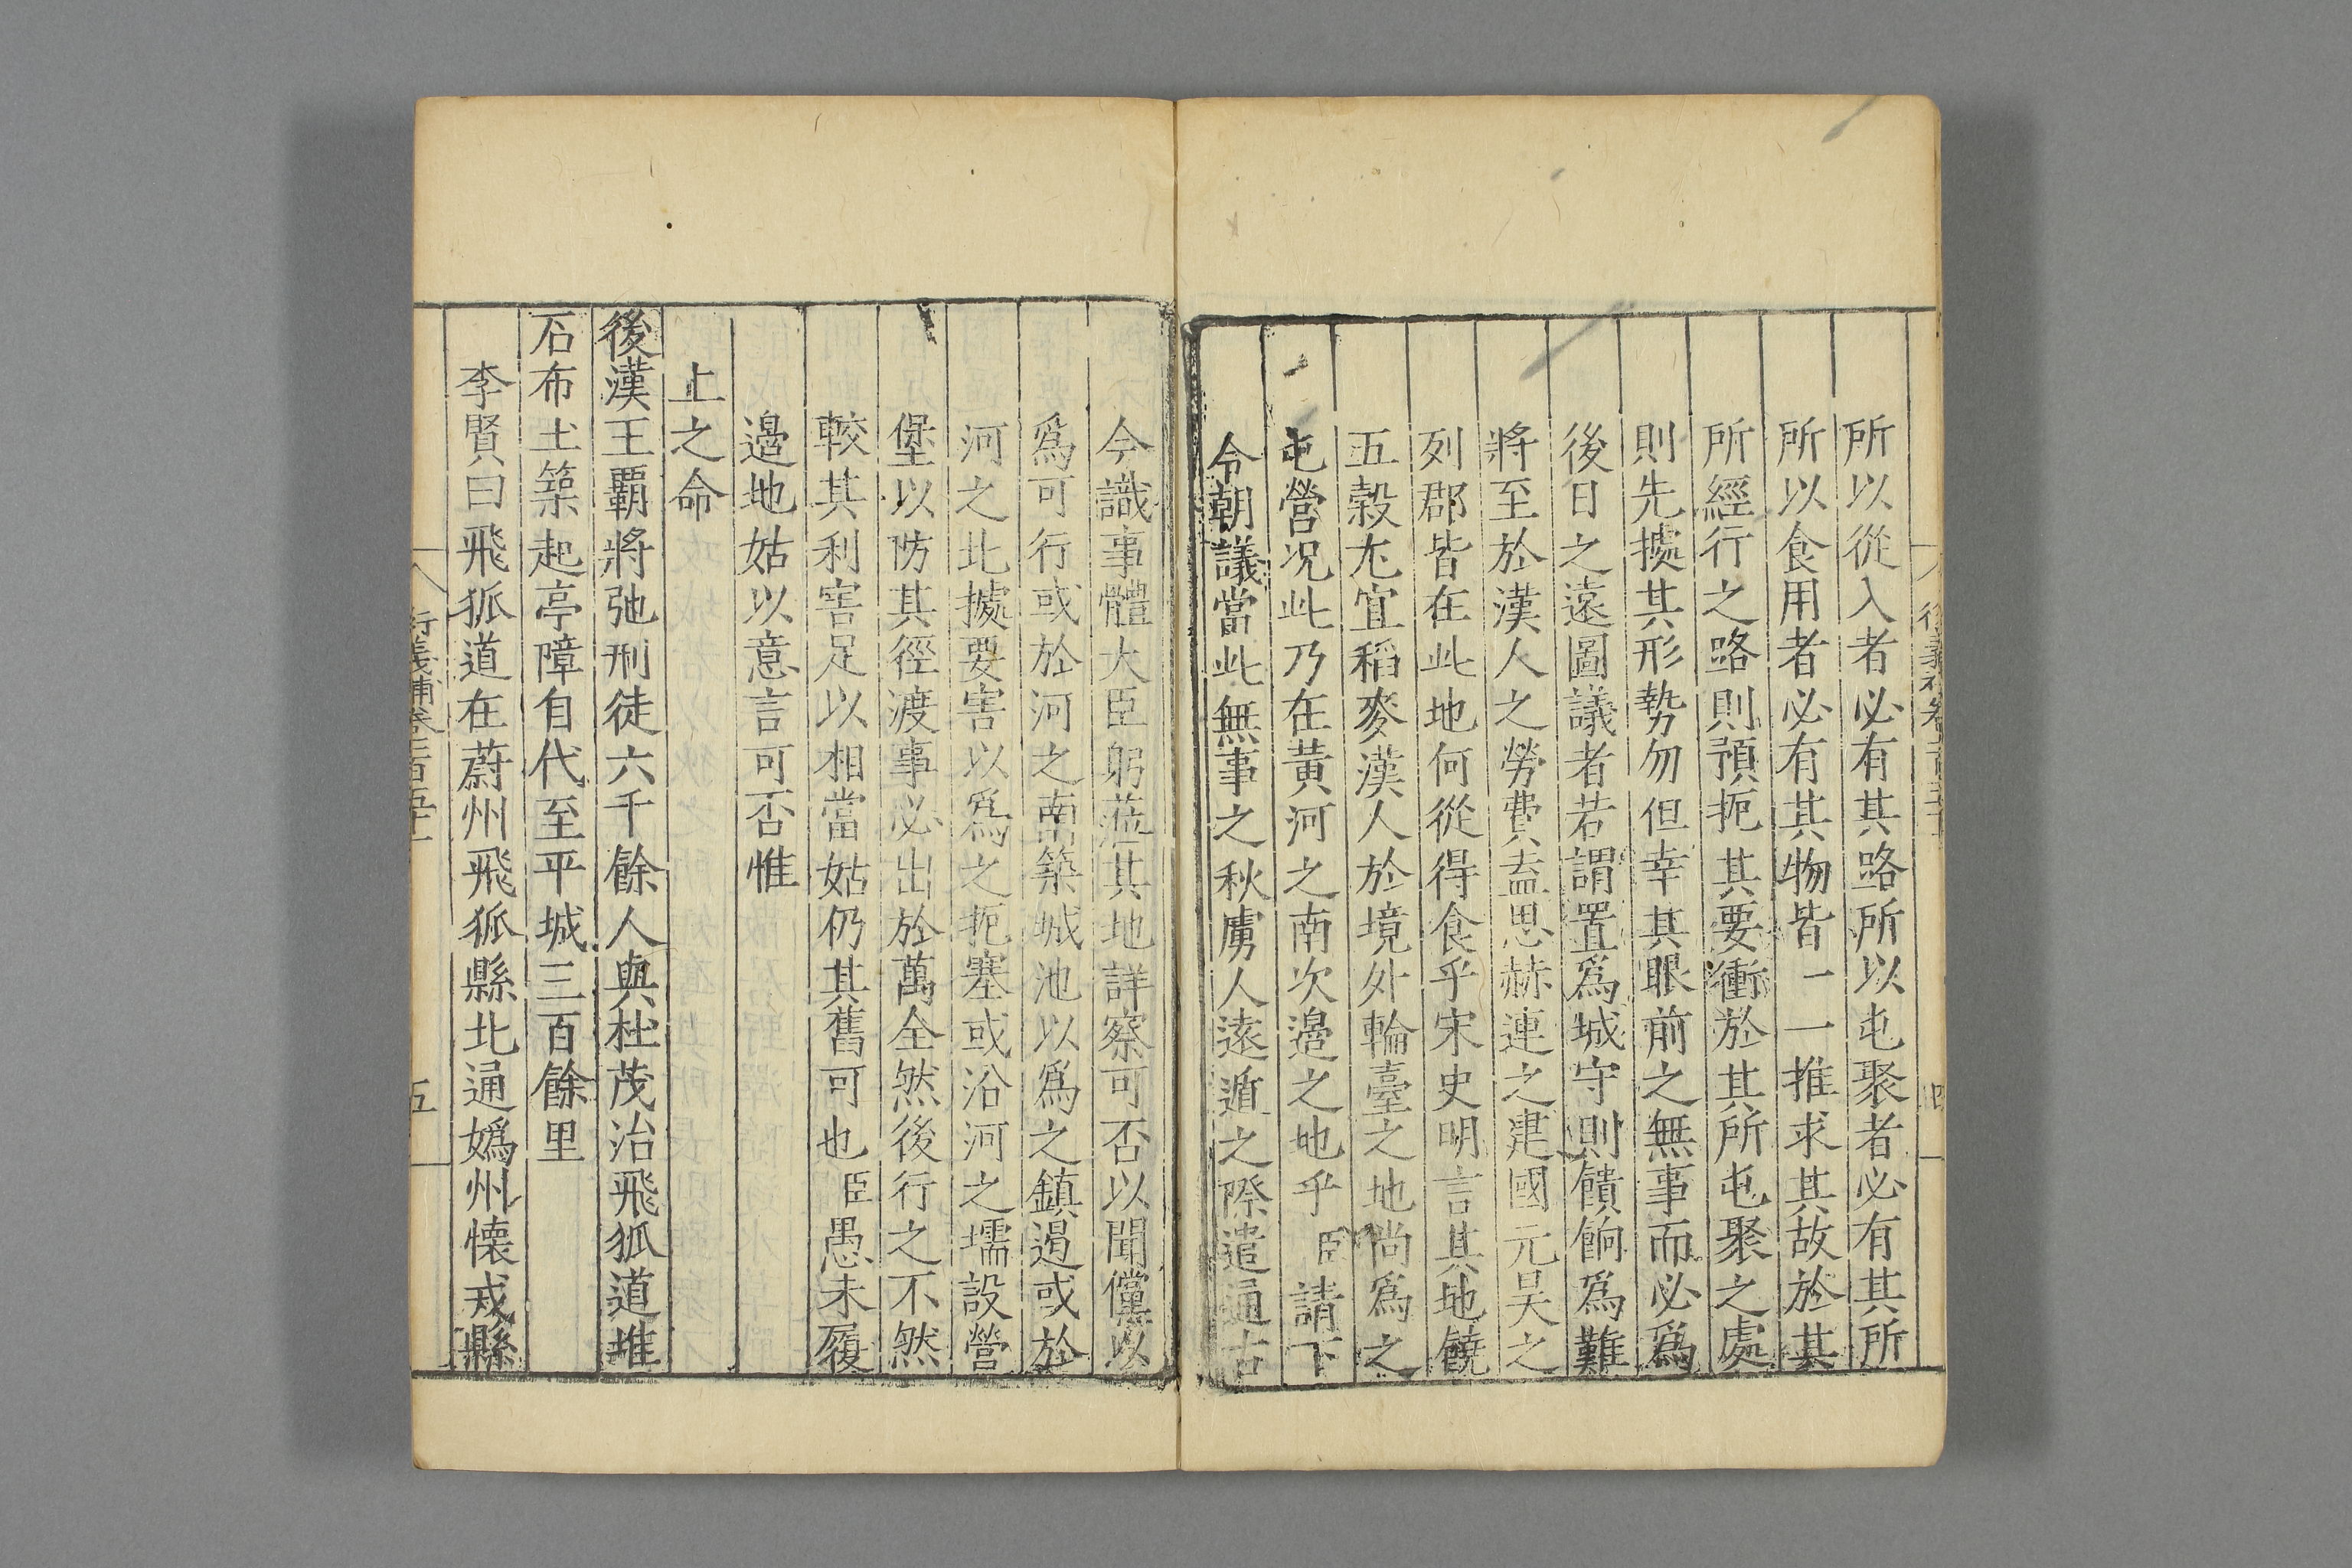 所以從入者必有其路所以屯聚者必有其所
所以食用者必有其物皆一一推求其故於其
所經行之路則預扼其要衝於其所屯聚之處
則先據其形勢勿但幸其眼前之無事而必爲
後日之遠圖議者若謂置爲城守則饋餉爲難
將至於漢人之勞費盍思赫連之建國元昊之
列郡皆在此地何從得食乎宋史明言其地饒
五穀尤宜稻麥漢人於境外輪臺之地尚爲之
屯營况此乃在黃河之南次邉之地乎臣請下
令朝議當此無事之秋虜人逺遁之際遣通古
今識事體大臣躬蒞其地詳察可否以聞儻以
爲可行或於河之南築城池以爲之鎮遏或於
河之北據要害以爲之扼塞或沿河之壖設營
堡以防其徑渡事必出於萬全然後行之不然
較其利害足以相當姑仍其舊可也臣愚未履
邉地姑以意言可否惟
上之命
後漢王覇將弛刑徒六千餘人與杜茂治飛狐道堆
石布土築起亭障自代至平城三百餘里
李賢曰飛狐道在蔚州飛狐縣北通媯州懷戎縣
五